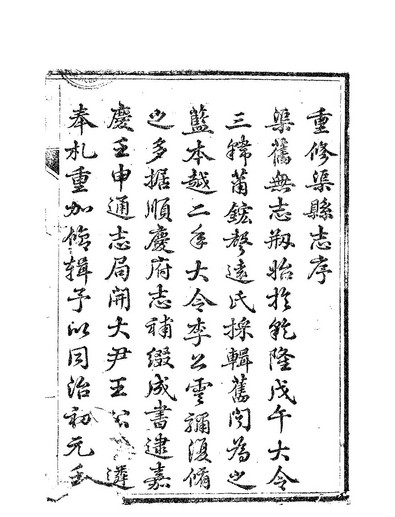 重修渠縣志序
渠舊無志剏始於乾隆戊午大令
三韓蕭鋐聲遠氏採輯舊聞為之
藍本越二年大令李公雲彌復脩
之多据順慶府志補綴成書逮嘉
慶壬申通志局開大尹王公 遵
奉札重加脩輯予以同治初元壬